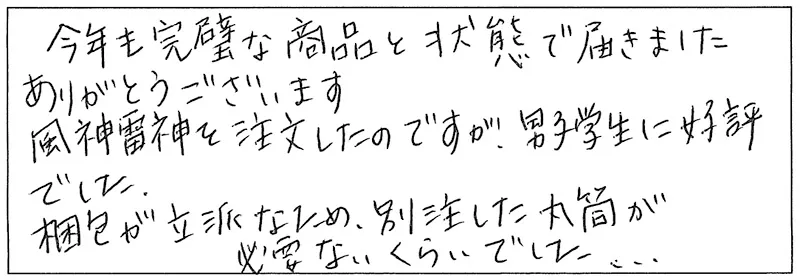 今年も完璧な商品と状態で届きました
ありがとうございます
風神雷神を注文したのですが、男子学生に好評
でした.
梱包が立派なため、別注した丸筒が
必要ないくらいでした....